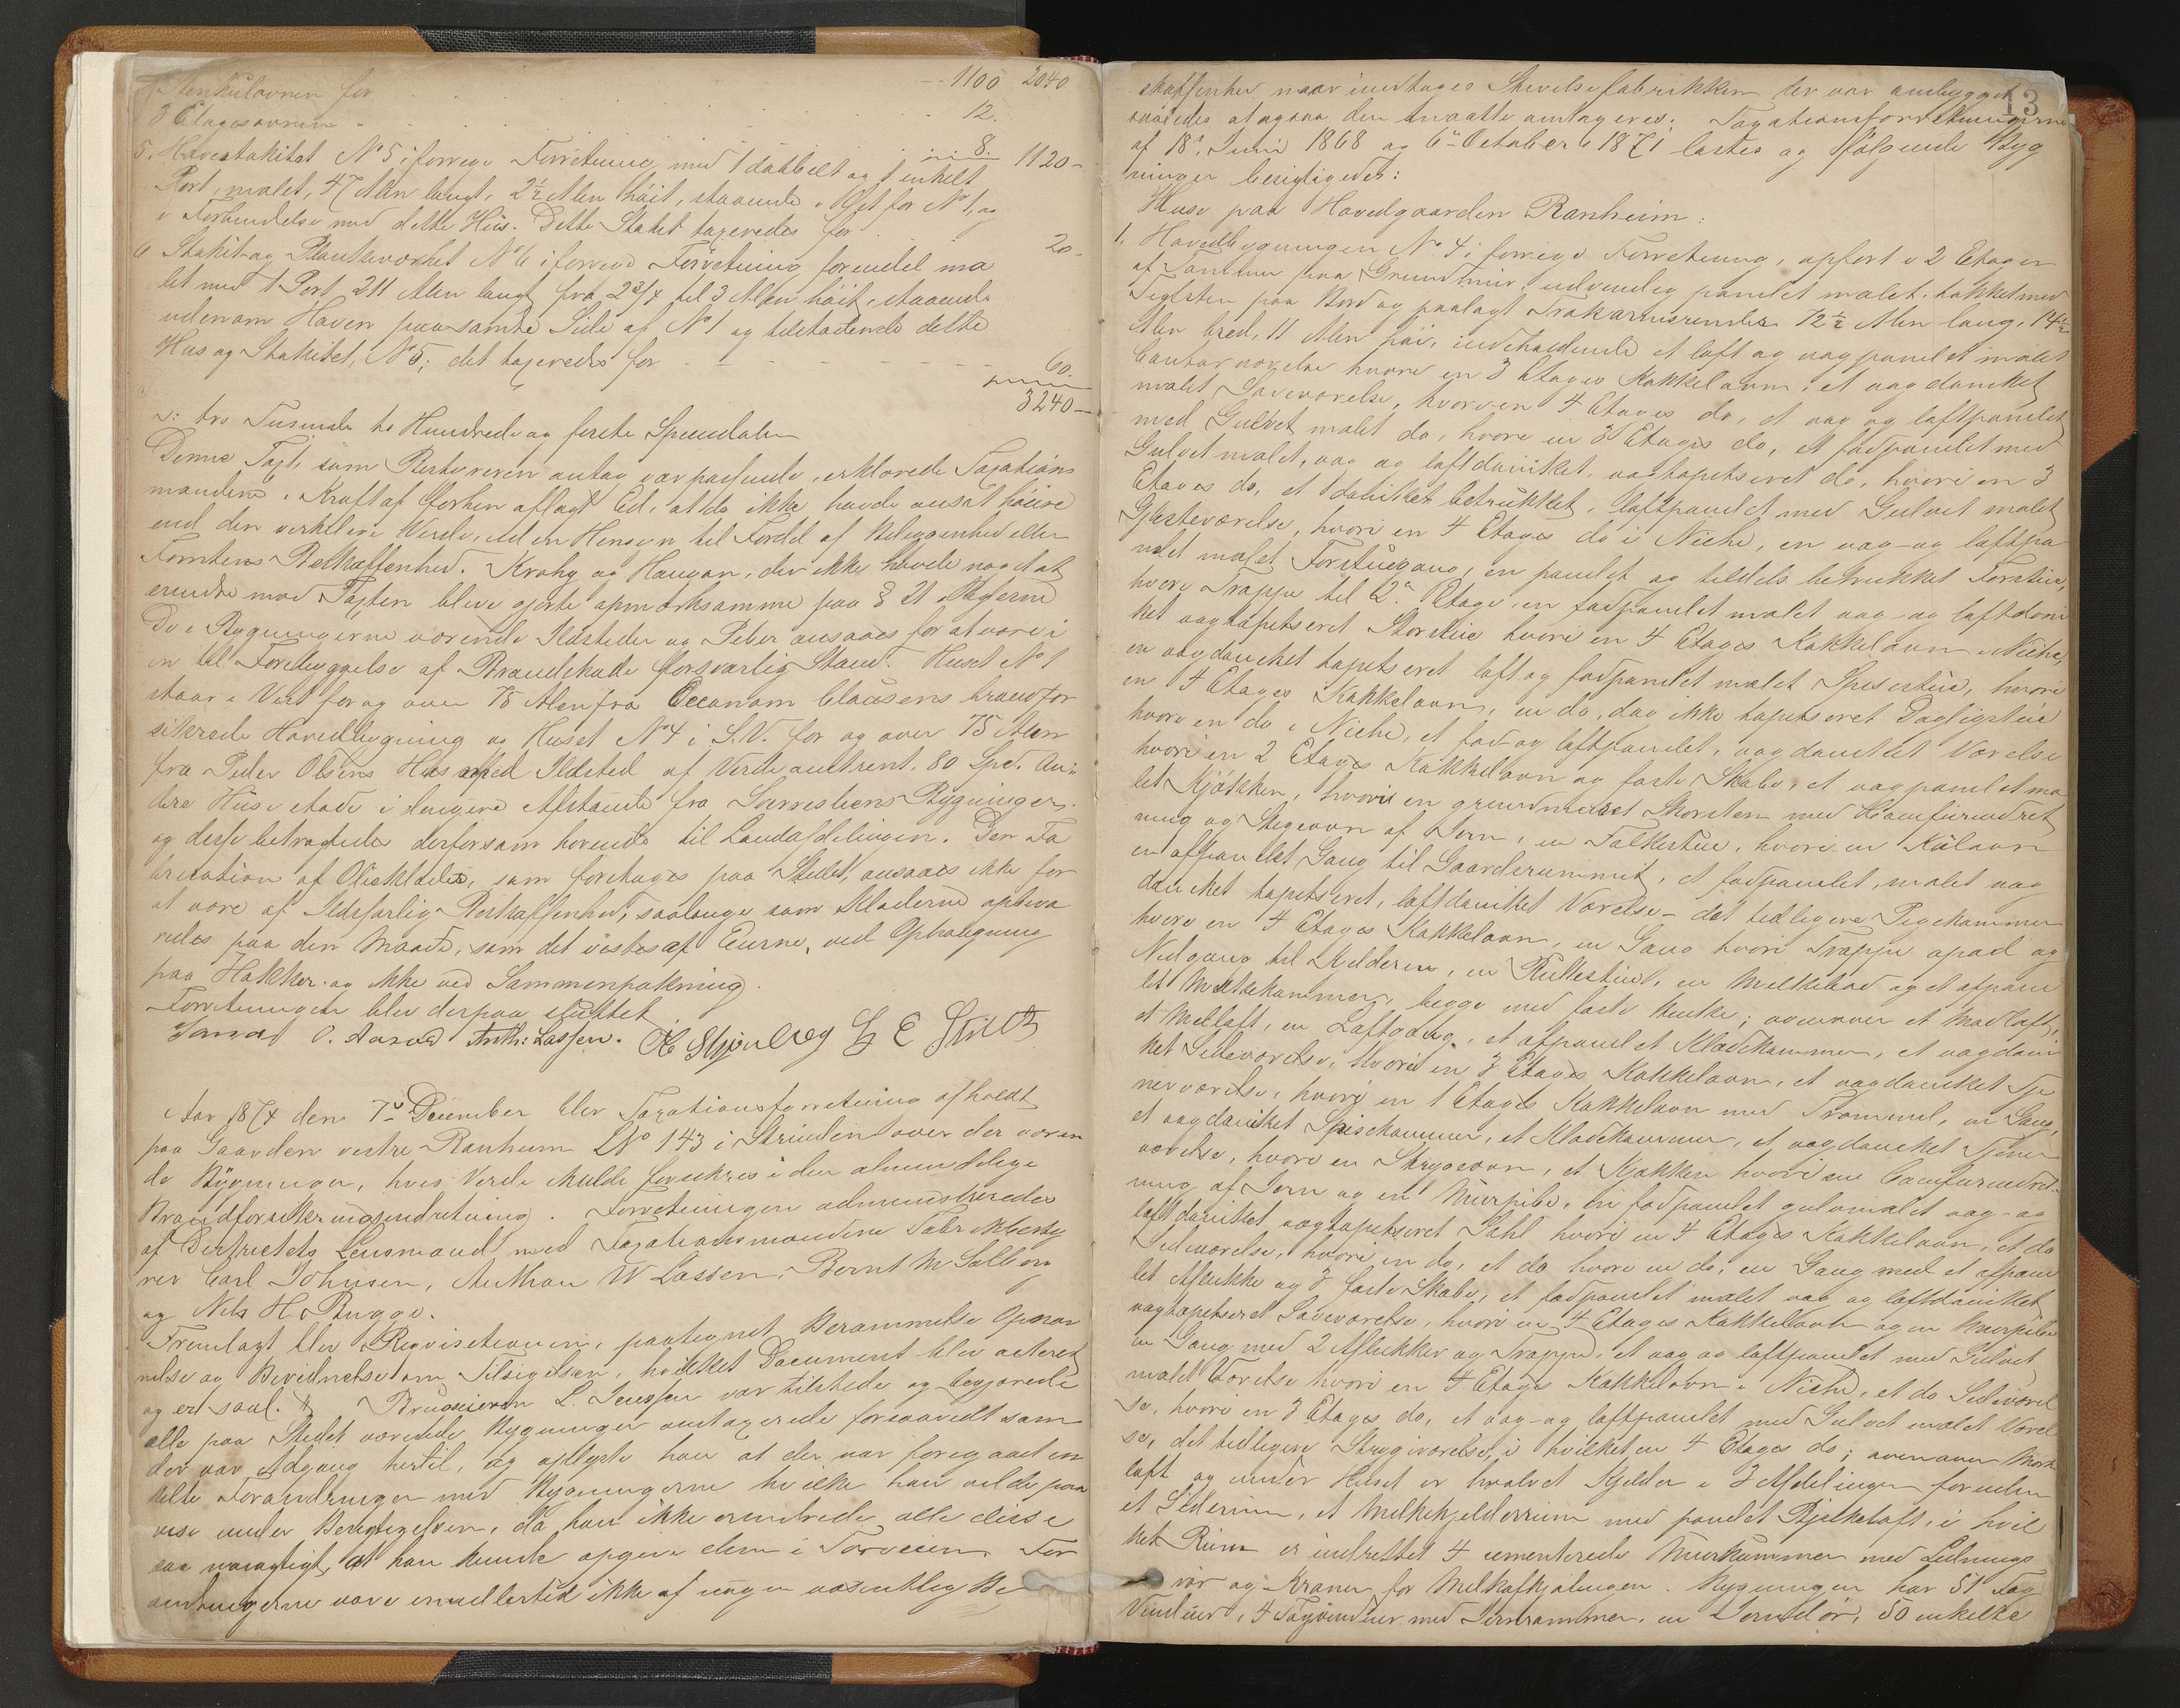 Stenkulovnen for 1100 2040
3 Etagesovnen 12.
8.
5. Havestakitet No 5 i forrige Forretning med 1 dobbelt og 1 enkelt 1120 -
Port, malet, 47 Alen langt, 2½ Alen høit, staaende i Øst for No 1, og
i Forbindelse med dette Hus. Dette Stakit taxeredes for 20 -
6 Stakit og Plankeværket No 6 i forrige Forretning forendel ma
let med 1 Port 211 Alen langt fra 2 3/4 til 3 Alen høit, staaende
udenom Haven paa samtlige Side af No 1 og tilstødende dette
Hus og Stakitet, No 5; det taxeredes for 60.
3240 -
tre Tusinde to Hundrede og førti Speciedaler
Denne Taxt, som Bestyreren antog var passende, erklærede Taxations
mændene i Kraft af forhen aflagt Ed, at de ikke havde ansat høiere
end den virkelige Værdi, uden Hensyn til Fordel af Beliggenhed eller
Tomtens Beskaffenhed. Krohg og Haugan, der ikke havde noget at
erindre mod Taxten bleve gjorte opmærksomme paa § 21
De i Bygningerne værende Ildsteder og Piber ansaaes for at være i
en til Forebyggelse af Brandskade forsvarlig Stand. Huset No 1
staar i Vest for og over 75 Alen fra Oeconom Clausens brandfor
sikrede Hovedbygning og Huset No 4 i S.V. for og over 75 Alen
fra Peder Olsens Hus med Ildsted af Værdi omtrent 80 Spd. An-
dre Huse stode i længere Afstand fra Bygninger
og disse betragtedes derfor som hørende til Landafdelingen. Den Fa
brication af Olieklæder, som foretages paa Stedet, ansaaes ikke for
at være af Ildsfarlig Beskaffenhed, saalænge som Klæderne opbeva
redes paa den Maade, som det vistes af Eierne, ved Ophængning
paa Hakker og ikke ved Sammenpakning.
Forretningen blev derpaa sluttet
O. Aasved Anth: Lassen.
Aar 1874 den 7de December blev Taxationsforretning afholdt
paa Gaarden vestre Ranheim LNo 143 i Strinden over der væren
de Bygninger, hvis Værdi skulde forsikres i den almindelige
Brandforsikringsindretning. Forretningen administreredes
af Districtets Lensmand med Taxationsmændene Fabrikbesty
rer Carl Johnsen, Anthon W Lassen, Bernt M Solberg
og Nels H. Bugge.
Fremlagt blev Reqvisitionen, paategnet Berammelse Opnæv
nelse og Bevidnelse om Tilsigelsen, hvilket Document blev acteret
og er saal. Brugseieren L. Jenssen var tilstede og begjærede
alle paa Stedet værende Bygninger omtaxerede forsaavidt som
der var Adgang hertil, og oplyste han at der var foregaaet en
kelte Forandringer med Bygningerne hvilke han vilde paa
vise under Besigtigelsen, da han ikke erindrede alle disse
saa nøiagtigt, at han kunde opgive dem i Forveien. For
andringerne vare imidlertid ikke af nogen væsentlig Be
13
skaffenhed naar undtages Stivelsefabrikken der var ombygget
saaledes at ogsaa den maatte omtaxeres. Taxationsforretningerne
af 18de Juni 1868 og 6te October 1871 læstes og følgende Byg
ninger besigtigedes:
Huse paa Hovedgaarden Ranheim:
1. Hovedbygningen No 4 i forrige Forretning, opført i 2 Etager
af Tømmer paa Grundmur, udvendig panelet malet, takket med
Teglsten paa Bord og paalagt Trækarnisrender 72½ Alen lang, 14½
Alen bred, 11 Alen høi, indeholdende et loft og vægpanelet malet
Contorværelse hvori en 3 Etages Kakkelovn, et vægdansket
malet Soveværelse, hvori en 4 Etages do, et væg og loftpanelet
med Gulvet malet do, hvori en 3 Etages do, et fodpanelet med
Gulvet malet, væg og loftdansket, vægtapetseret do, hvori en 3
Etages do, et dansket betrukket, loftpanelet med Gulvet malet
Gjesteværelse, hvori en 4 Etages do i Niche, en væg- og loftpa
nelet malet Forstuegang, en panelet og tildels betrukket Forstue,
hvori Trappe til 2den Etage, en fodpanelet malet væg- og loftdan
sket vægtapetseret Storstue hvori en 4 Etages Kakkelovn i Niche,
en vægdansket tapetseret loft og fodpanelet malet Spisestue, hvori
en 4 Etages Kakkelovn, en do, dog ikke tapetseret Dagligstue
hvori en do i Niche, et fod og loftpanelet, vægdansket Værelse
hvori en 2 Etages Kakkelovn og faste Skabe, et vægpanelet ma
let Kjøkken, hvori en grundmuret Skorsten med Komfurindret
ning og Stegeovn af Jern, en Folkestue, hvori en Kulovn
en afpanelet Gang til Gaardsrummet, et fodpanelet, malet væg
dansket tapetseret, loftdansket Værelse - det tidligere Pigekammer
hvori en 4 Etages Kakkelovn, en Gang hvori Trappe opad og
Nedgang til Kjelderen, en Rullestue, en Melkebod og et afpane
let Melkekammer, begge med faste Bænke; ovenover et Madloft,
et Melloft, en Loftgang, et afpanelet Klædekammer, et vægdan
sket Sideværelse, hvori en 3 Etages Kakkelovn, et vægdansket Tje
nerværelse, hvori en 1 Etages Kakkelovn med Trommel, en Gang,
et vægdansket Spisekammer, et Klædekammer, et vægdansket Tjener
værelse, hvori en Strygeovn, et Kjøkken hvori en Comfurindret-
ning af Jern og en Muurpibe, en fodpanelet gulvmalet væg- og
loftdansket vægtapetseret Sahl hvori en 4 Etages Kakkelovn, et do
Sideværelse, hvori en do, et do hvori en do, en Gang med et afpane
let Aflukke og 3 faste Skabe, et fodpanelet malet væg og loftdansket
vægtapetseret Soveværelse, hvori en 4 Etages Kakkelovn og en Muurpibe
en Gang med 2 Aflukker og Trappe, et væg og loftpanelet med Gulvet
malet Værelse hvori en 4 Etages Kakkelovn i Niche, et do Sideværel
se, hvori en 3 Etages do, et væg- og loftpanelet med Gulvet malet Værel
se, det tidligere Strygeværelse, i hvilket en 4 Etages do; ovenover Mørk
loft og under Huset er hvælvet Kjelder i 3 Afdelinger foruden
et Siderum, et Melkekjelderrum med panelet Bjelkeloft, i hvil
ket Rum er indrettet 4 cementerede Muurkummer med Lednings
rør og Kraner for Melkafkjølingen. Bygningen har 51 Fag
Vinduer, 4 Tagvinduer med Jernrammer, en Jerndør, 50 enkelte